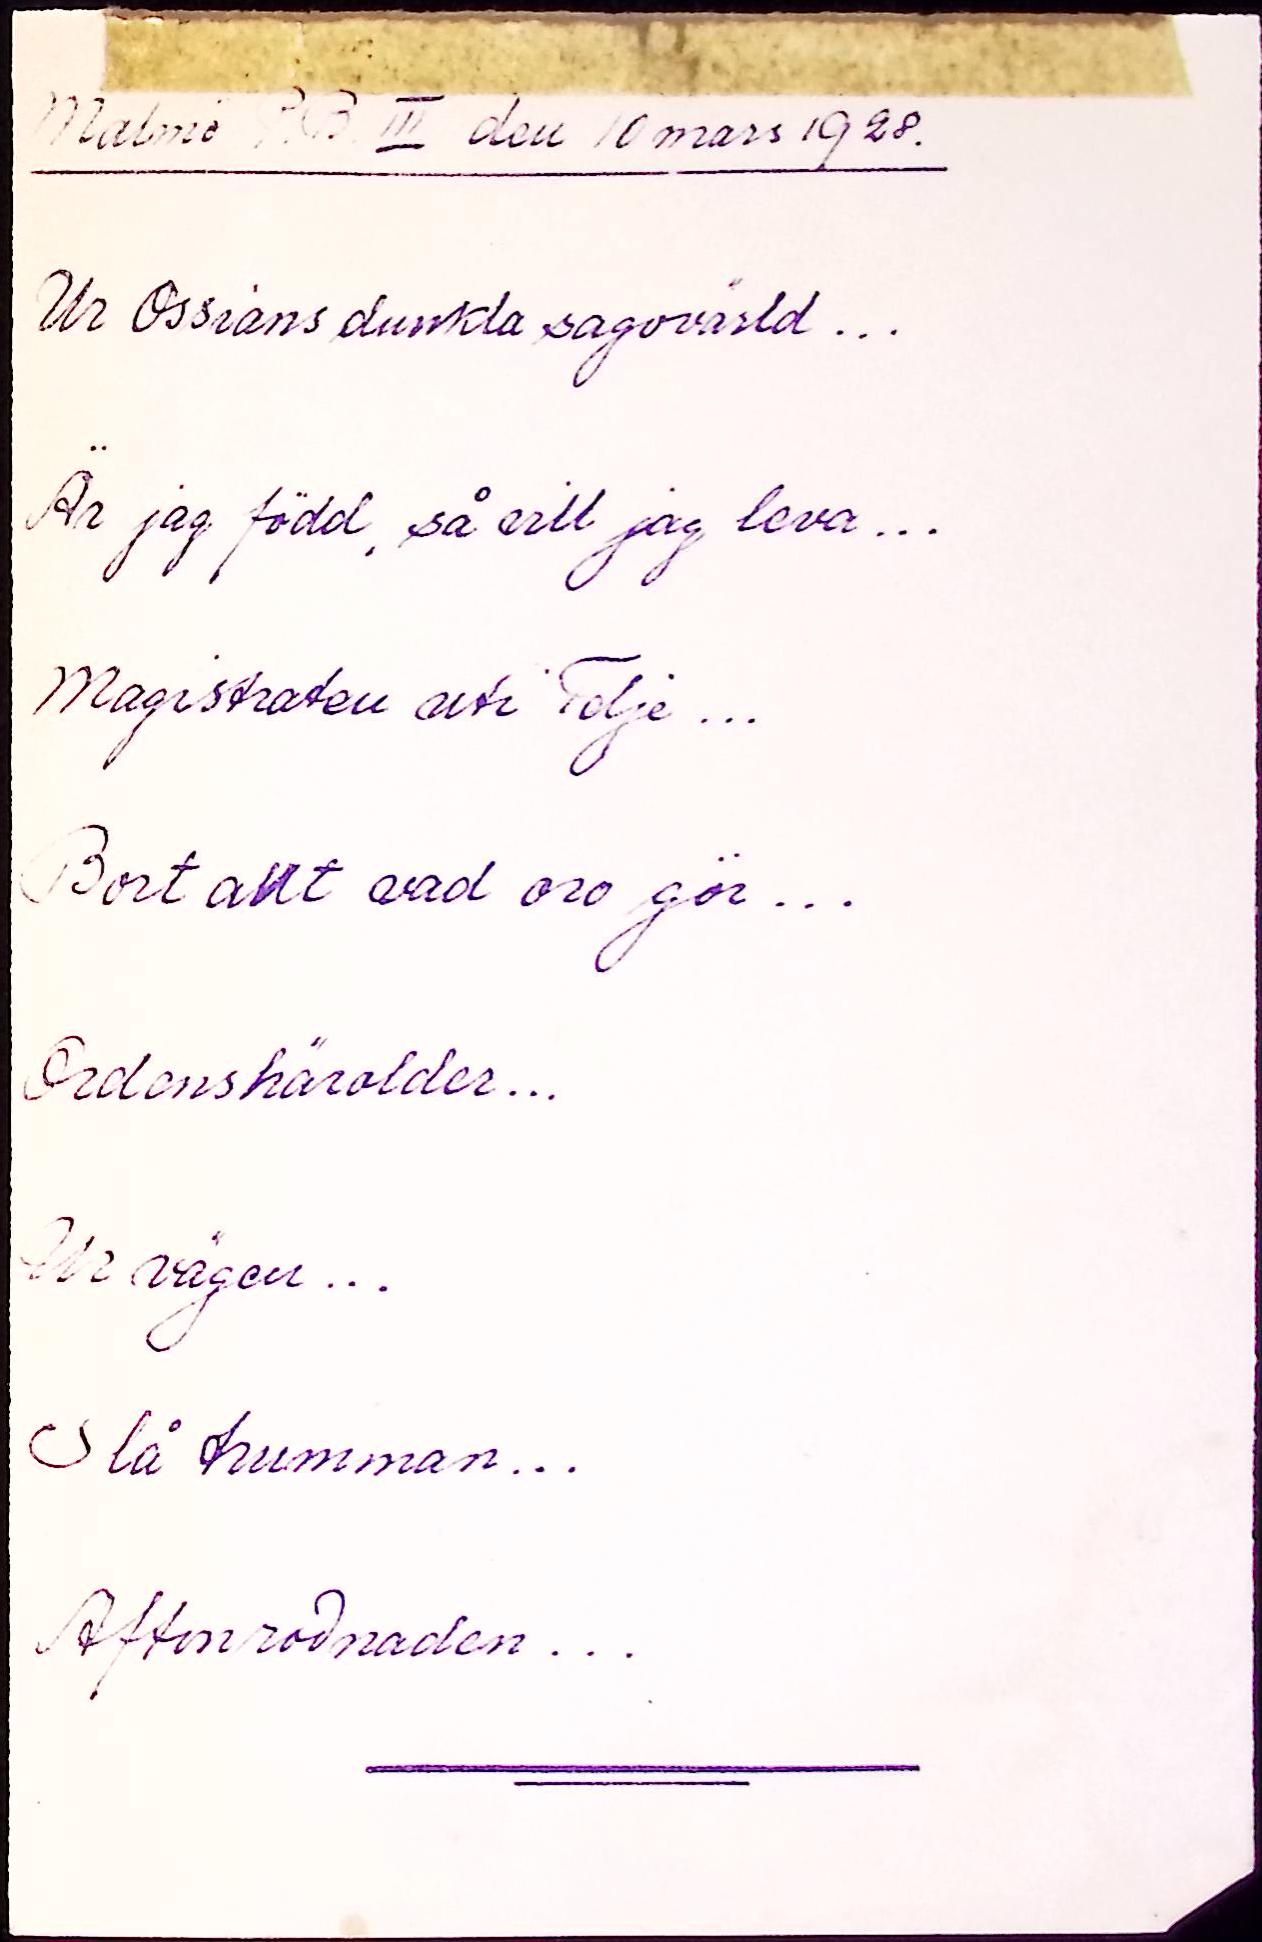 Malmö P.B. III den 10 mars 1928.
Ur Ossians dunkla sagovärld...
Är jag född, så vill jag leva...
Magistraten uti Tälje...
Bort allt vad oro gör...
Ordenshärolder...
Ur vägen...
Slå trumman...
Aftonrodnaden...